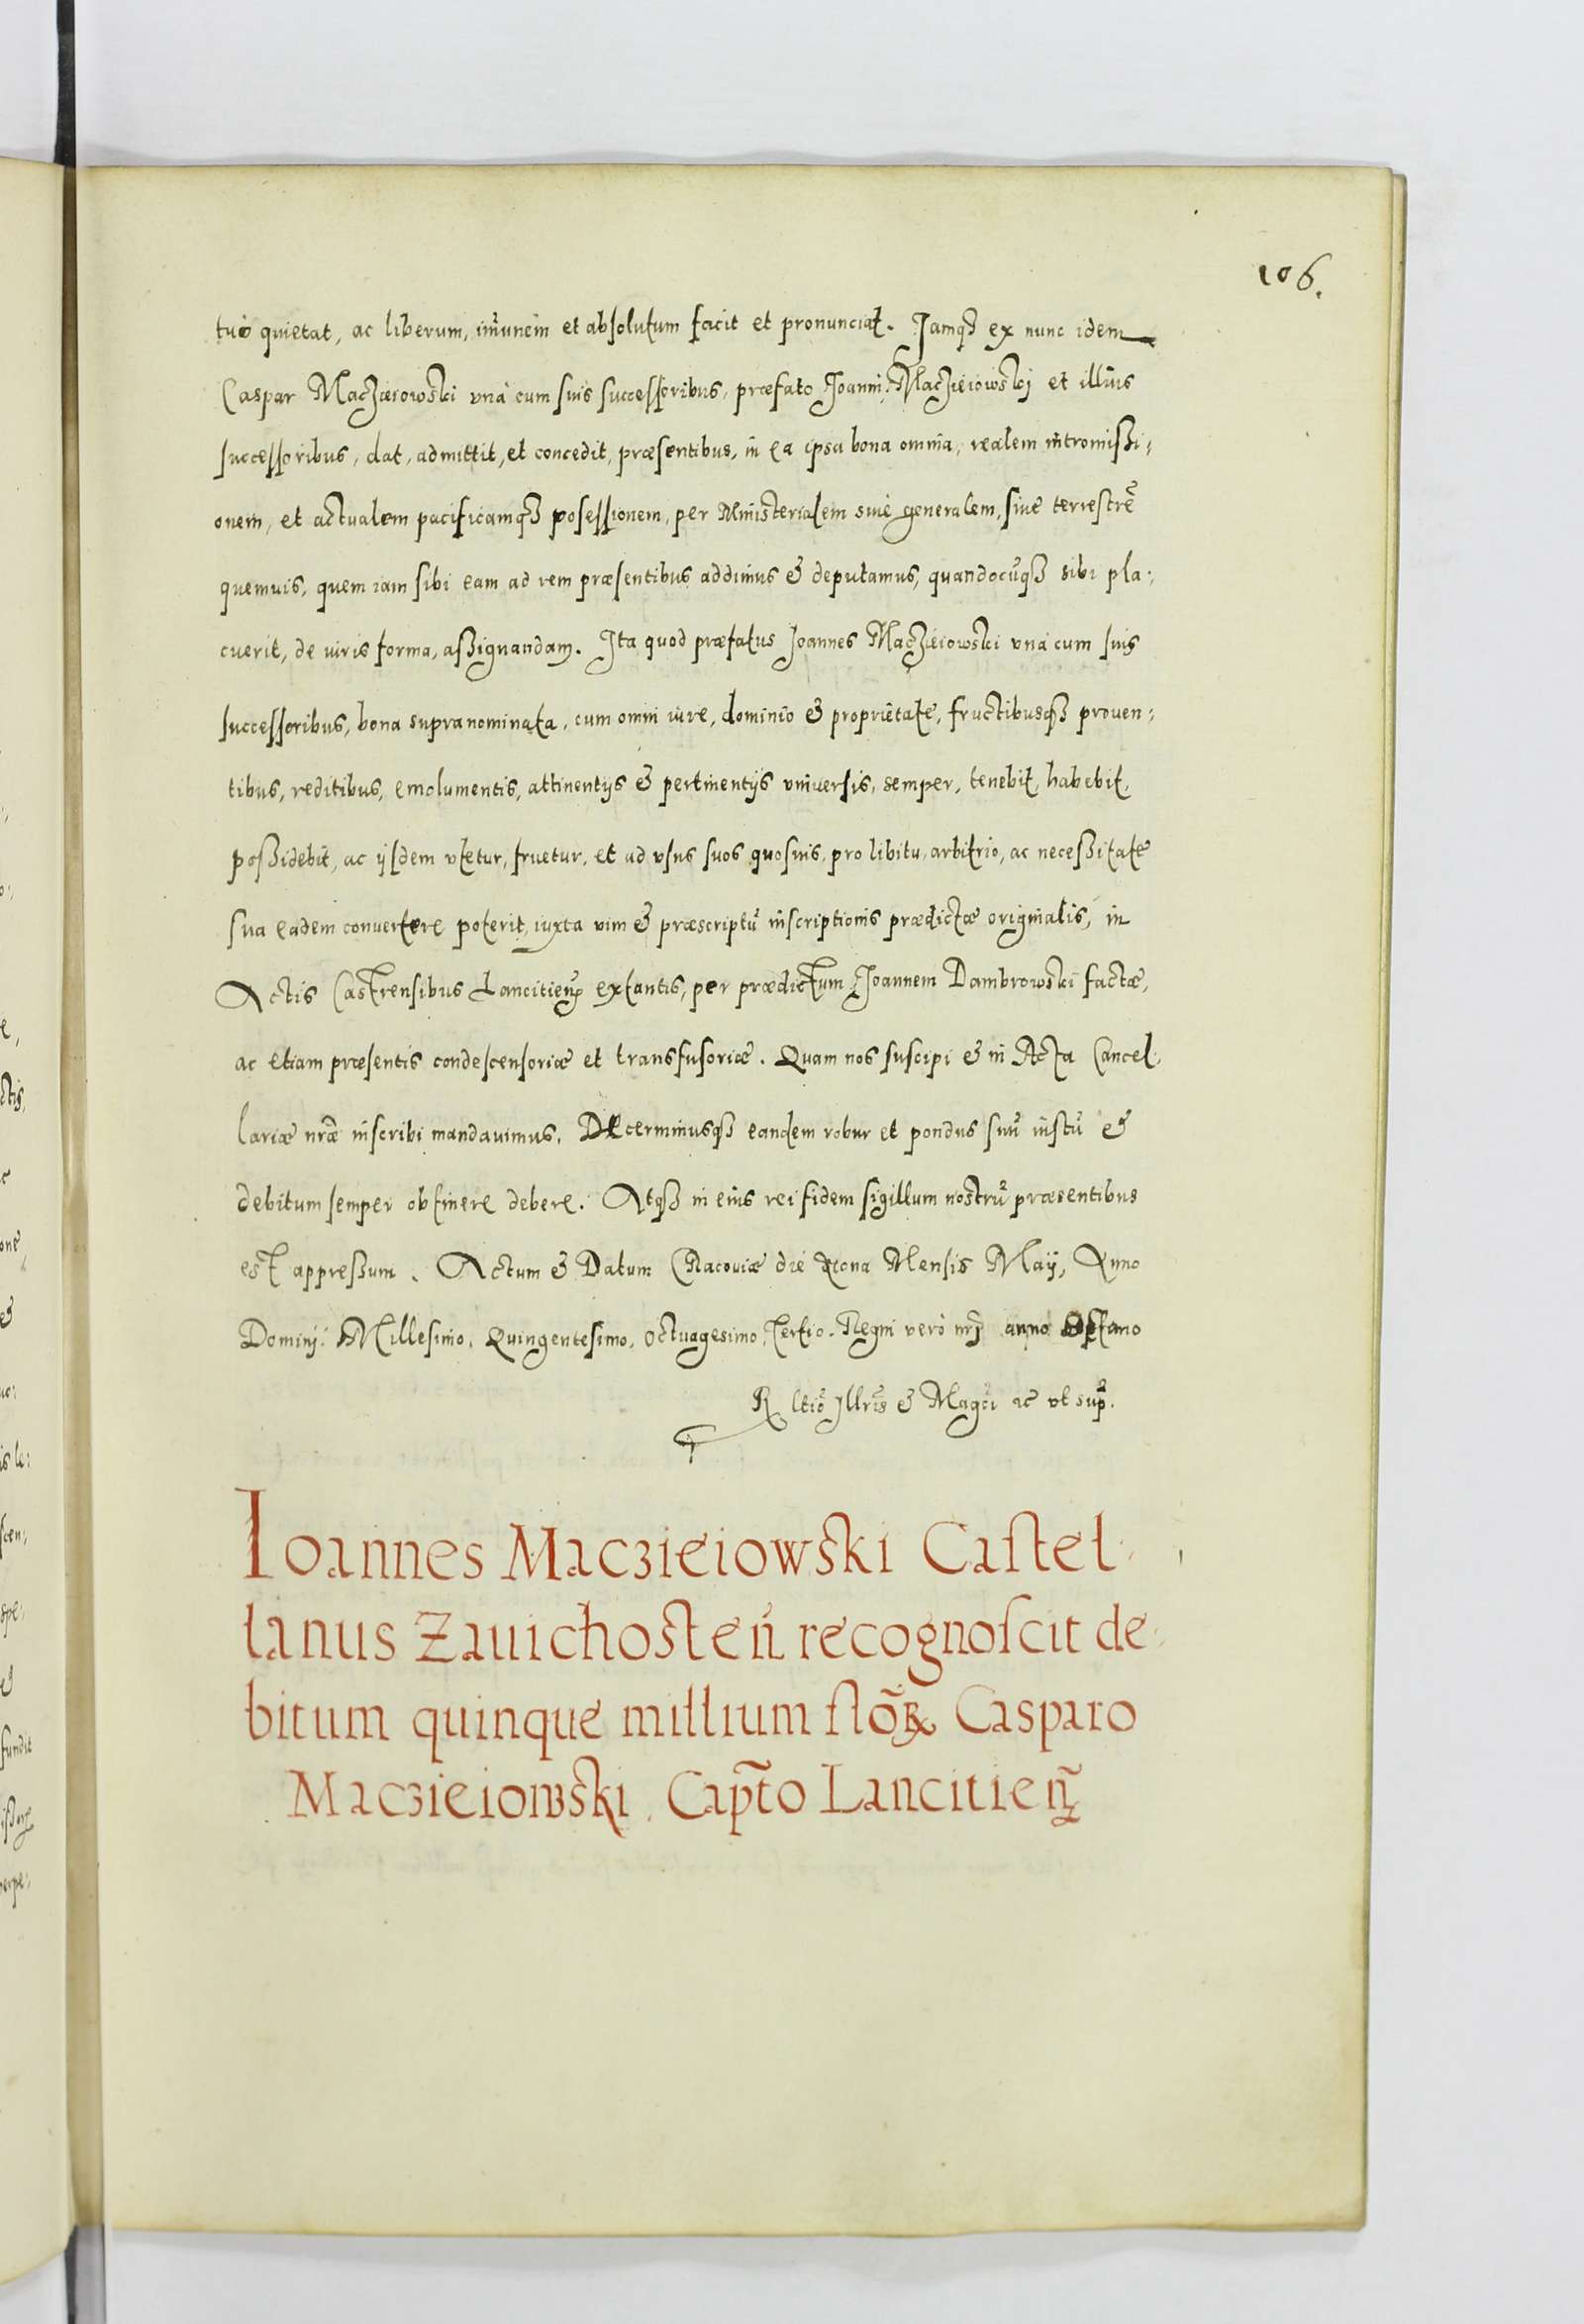 106.
tuò quietat, ac liberum, im̃unem et absolutum facit et pronunciat. Jamqꝫ ex nunc idem
Caspar Maczieiowski vnà cum suis successoribus, præfato Joanni Maczieiowskj et illius
successoribus, dat, admittit, et concedit, præsentibus, in ea ipsa bona omnia, realem intromißi:
onem, et actualem pacificamqꝫ posessionem, per Ministerialem siuè generalem, siuè terrestrẽ
quemuis, quem iam sibi eam ad rem præsentibus addimus & deputamus, quandocũqꝫ sibi pla:
cuerit, de iuris forma, aßignandam. Ita quod præfatus Joannes Maczieiowski vnà cum suis
successoribus, bona supranominata, cum omni iure, dominio & proprietate, fructibusqꝫ prouen:
tibus, reditibus, emolumentis, attinentijs & pertinentijs vniuersis, semper, tenebit, habebit,
poßidebit, ac ijsdem vtetur, fruetur, et ad vsus suos quosuis, pro libitu, arbitrio, ac neceßitate
sua eadem conuertere poterit, iuxta vim & præscriptũ inscriptionis prædictæ originalis, in
Actis Castrensibus Lancitieñ extantis, per prædictum Joannem Dambrowski factæ,
ac etiam præsentis condescensoriæ et transfusoriæ. Quam nos suscipi & in Acta Cancel:
lariæ nr̃æ inscribi mandauimus, Decernimusqꝫ eandem robur et pondus suũ iustũ &
debitum semper obtinere debere. Atqꝫ in eius rei fidem sigillum nostrũ præsentibus
est appreßum. Actum & Datum Cracouiæ die Nona Mensis Maij, Anno
Dominj Millesimo, Quingentesimo, Octuagesimo, Tertio. Regni verò nrj̃ anno Octauo
R ltiõ Jllris̃ & Magci ac vt sup̃.
Ioannes Maczieiowski Castel:
lanus Zauichosteñ recognoscit de:
bitum quinque millium flõꝝ Casparo
Maczieiowski Cap̃to Lancitieñ